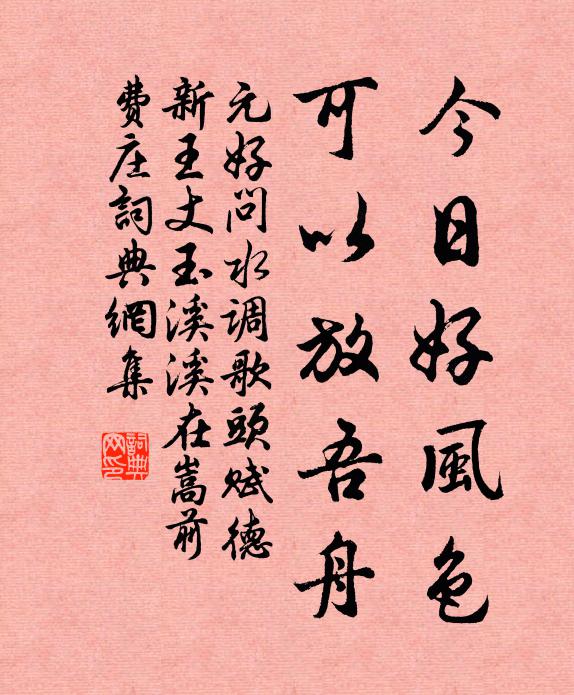 今日好風色
可以放吾舟
元好問水调歌頭赋德
新王丈玉溪溪在嵩前
費庄詞典網集
詞典
网印